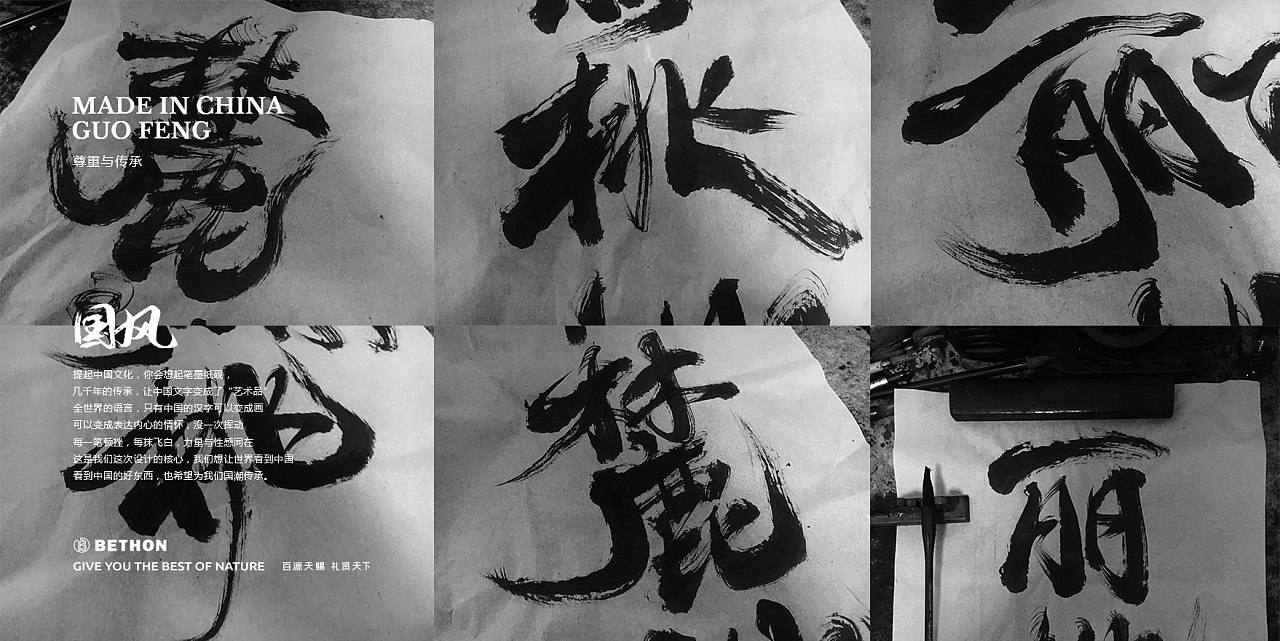 MADE IN CHINA
GUO FENG
尊重与传承
国风
提起中国文化，你会想起笔墨纸砚
几千年的传承，让中国文字变成了“艺术品
全世界的语言，只有中国的汉字可以变成画
可以变成表达内心的情怀，没一次挥动
每一笔顿挫，每抹飞白，力量与性感同在
这是我们这次设计的核心，我们想让世界看到中国
看到中国的好东西，也希望为我们国潮传承。
BETHON
GIVE YOU THE BEST OF NATURE 百源天赐 礼贤天下
桃
丽
麓
丽